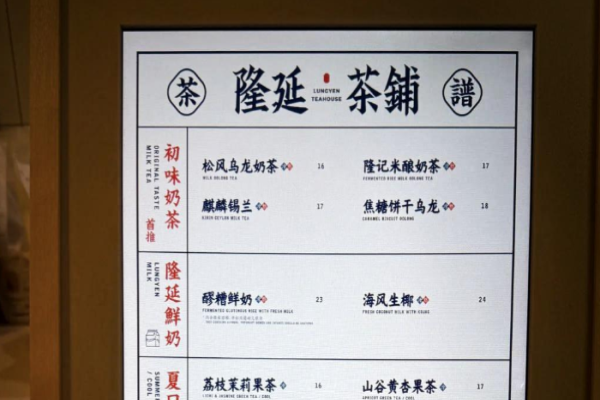 茶 隆延 LUNGYEN TEAHOUSE 茶鋪 譜
初味奶茶
ORIGINAL TASTE MILK TEA
首推
松风乌龙奶茶 16
MILK OOLONG TEA
隆记米酿奶茶 17
FERMENTED RICE MILK OOLONG TEA
麒麟锡兰 17
KIRIN CEYLON MILK TEA
焦糖饼干乌龙 18
CARAMEL BISCUIT OOLONG
隆延鮮奶
LUNGYEN MILK
醪糟鲜奶 23
FERMENTED GLUTINOUS RICE WITH FRESH MILK
海风生椰 24
FRESH COCONUT MILK WITH SUGAR
夏日
SUMMER / COOL
荔枝茉莉果茶 16
LYCHEE & JASMINE GREEN TEA / COOL
山谷黄杏果茶 17
APRICOT GREEN TEA / COOL